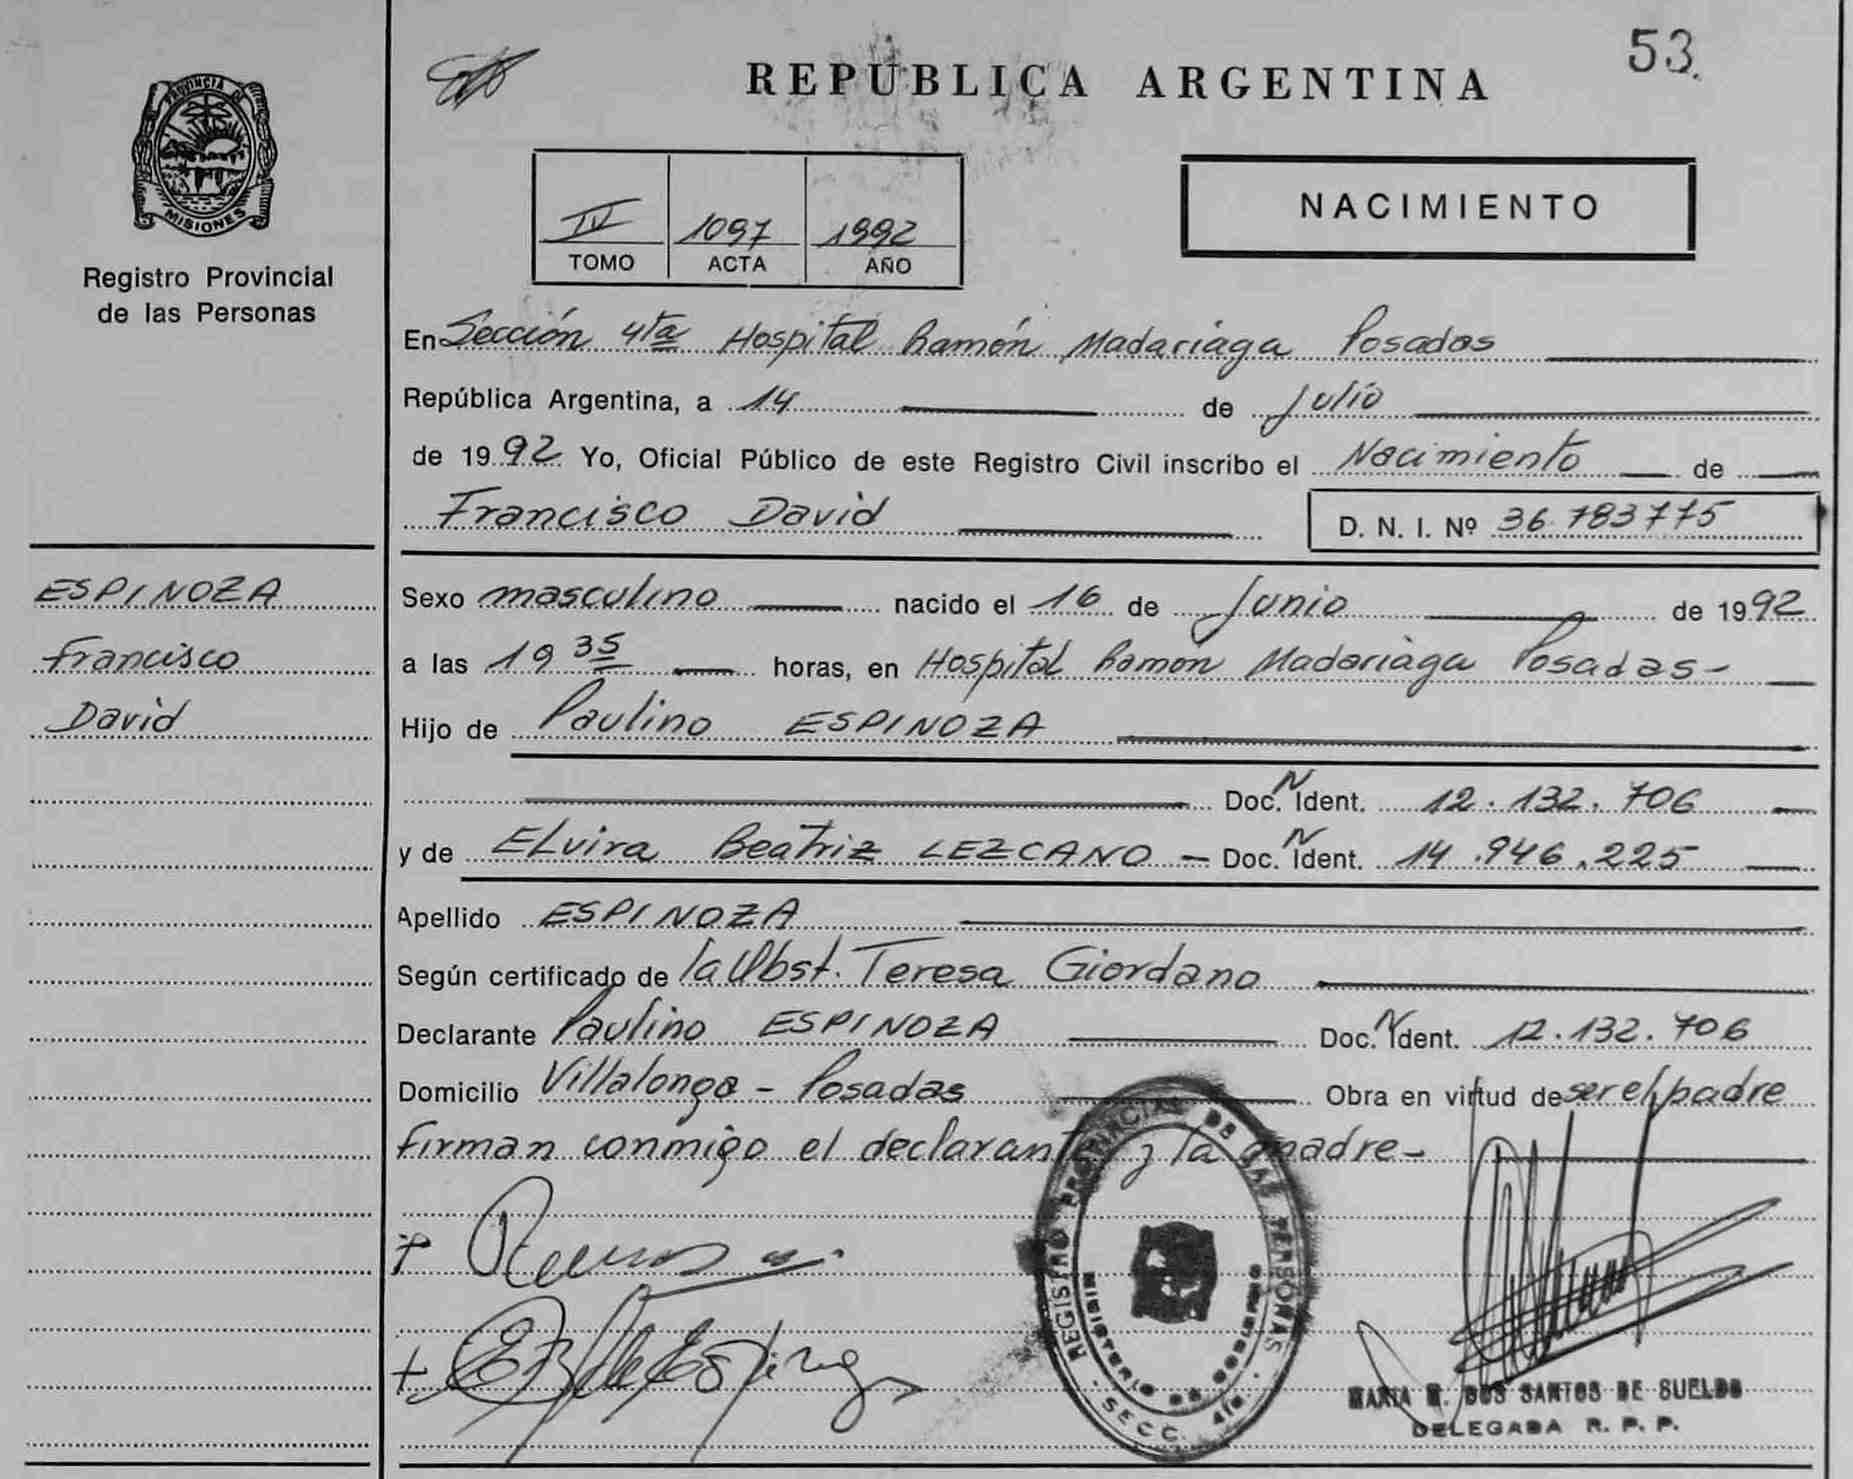 53.
REPUBLICA ARGENTINA
PROVINCIA DE
MISIONES
Registro Provincial
de las Personas
IV 1097 1992
TOMO ACTA AÑO
NACIMIENTO
En Sección 4ta Hospital Ramón Madariaga Posadas
República Argentina, a 14 de Julio
de 1992 Yo, Oficial Público de este Registro Civil inscribo el Nacimiento de
Francisco David D. N. I. Nº 36.783775
ESPINOZA
Francisco
David
Sexo masculino nacido el 16 de Junio de 1992
a las 19 35 horas, en Hospital Ramón Madariaga Posadas-
Hijo de Paulino ESPINOZA
Doc. N Ident. 12.132.706
y de ELvira Beatriz LEZCANO - Doc. N Ident. 14.946.225
Apellido ESPINOZA
Según certificado de la Obst. Teresa Giordano
Declarante Paulino ESPINOZA Doc. N Ident. 12.132.706
Domicilio Villalonga - Posadas Obra en virtud de ser el padre
firman conmigo el declarante y la madre-
REGISTRO PROVINCIAL DE LAS PERSONAS
MINISTERIO DE GOBIERNO
SECC. 4ta.
MARIA M. DOS SANTOS DE SUELDO
DELEGADA R. P. P.